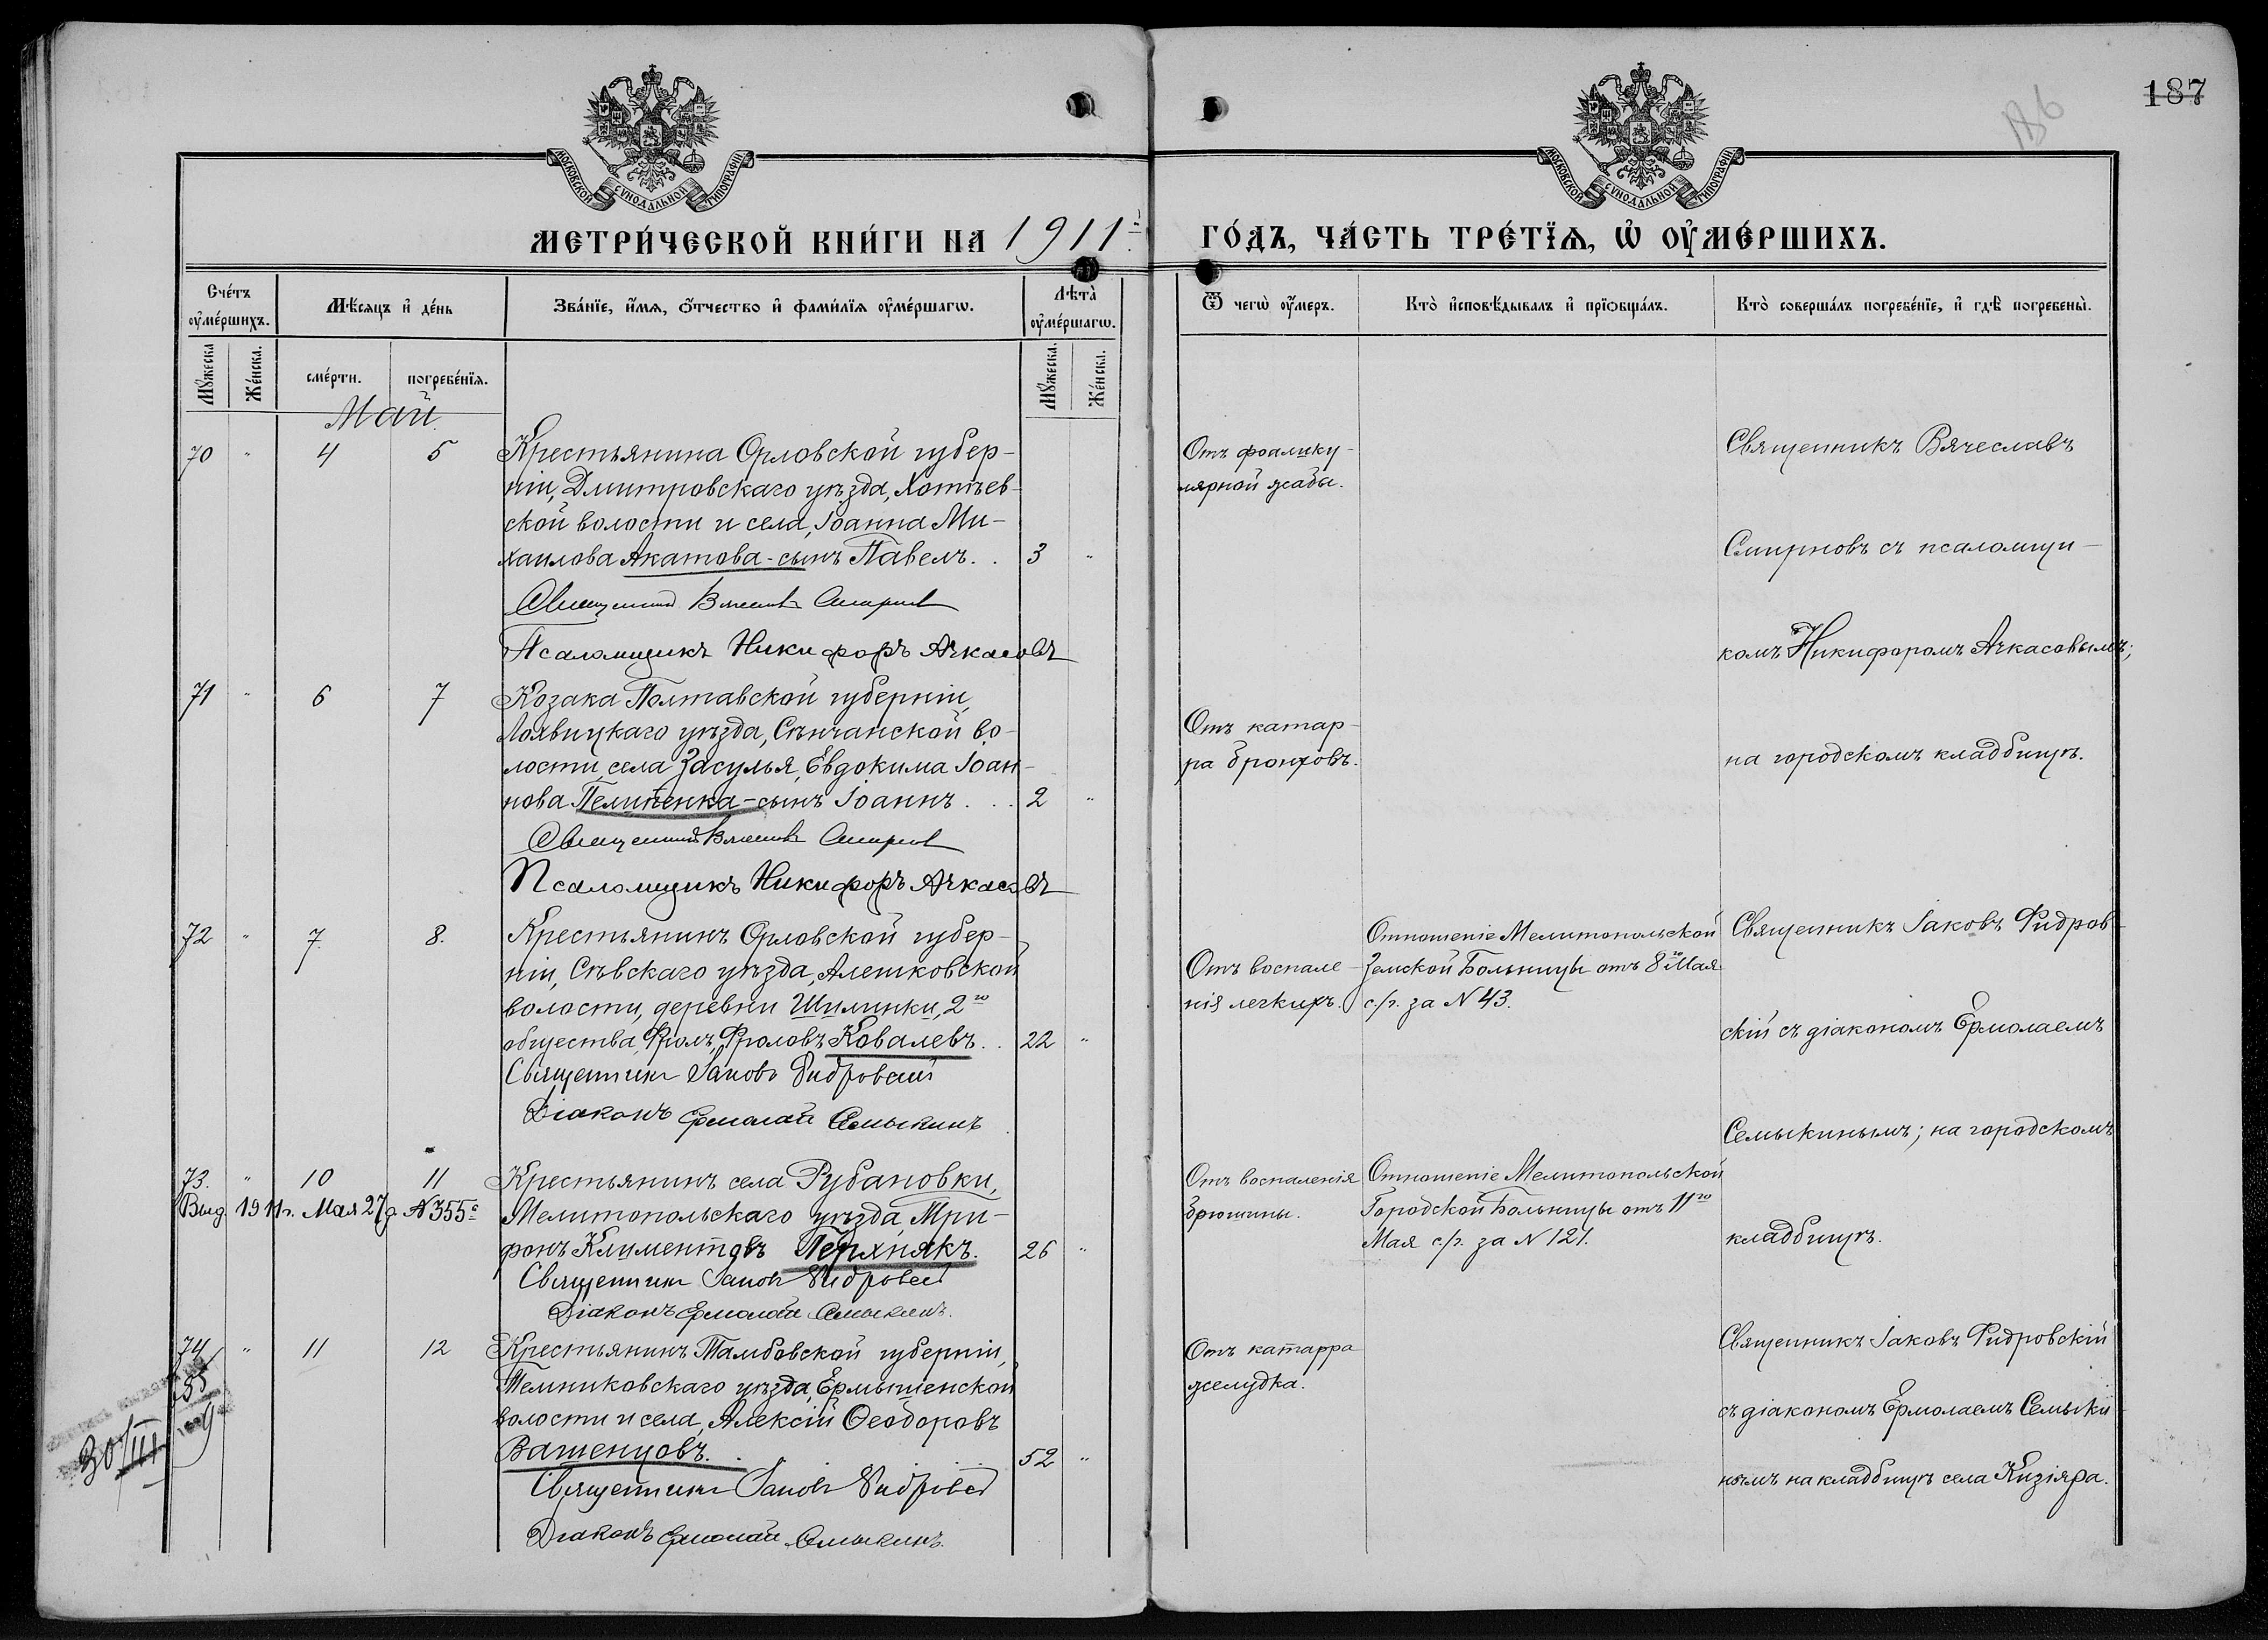 187
186
МОСКОВСКОЙ СѴНОДАЛЬНОЙ ТИПОГРАФІИ
МОСКОВСКОЙ СѴНОДАЛЬНОЙ ТИПОГРАФІИ
МЕТРИ́ЧЕСКОЙ КНИ́ГИ НА 1911й
ГО́ДЪ, ЧА́СТЬ ТРЕ́ТЇѦ, Ѽ ОУ҆МЕ́РШИХЪ.
Сче́тъ оу҆ме́ршихъ.
Мѣ́сяцъ и҆ де́нь
Зва́нїе, и҆́мя, ѻ҆́тчество и҆ фами́лїя оу҆ме́ршагѡ.
Лѣта̀ оу҆ме́ршагѡ.
Ѿ чегѡ̀ оу҆́меръ.
Кто̀ и҆сповѣ́дывалъ и҆ прїѡбща́лъ.
Кто̀ соверша́лъ погребе́нїе, и҆ гдѣ̀ погребены̀.
Мꙋ́жеска
Же́нска.
сме́рти.
погребе́нїя.
Мꙋ́жеска.
Же́нска.
Май.
70 " 4 5
Крестьянина Орловской губер-
ніи, Дмитровскаго уѣзда, Хотьев-
ской волости и села, Іоанна Ми-
хаилова Акатова - сынъ Павелъ. . 3 "
Священникъ Вячеславъ Смирновъ
Псаломщикъ Никифоръ Ачкасовъ
Отъ фолику-
лярной жабы.
Священникъ Вячеславъ
Смирновъ съ псаломщи-
комъ Никифоромъ Ачкасовымъ;
на городскомъ кладбищѣ.
71 " 6 7
Козака Полтавской губерніи,
Лохвицкаго уѣзда, Сѣнчанской во-
лости, села Засулья, Евдокима Іоан-
нова Пелипенка - сынъ Іоаннъ . . . 2 "
Священникъ Вячеславъ Смирновъ
Псаломщикъ Никифоръ Ачкасовъ
Отъ катар-
ра бронховъ.
72 " 7. 8.
Крестьянинъ Орловской губер-
ніи, Сѣвскаго уѣзда, Алешковской
волости, деревни Шилинки, 2го
общества, Фролъ Фроловъ Ковалевъ. . 22 "
Священникъ Іаковъ Фидровскій
Діаконъ Ермолай Семыкинъ
Отъ воспале-
нія легкихъ.
Отношеніе Мелитопольской
Земской Больницы отъ 8го Мая
с/г. за N 43.
Священникъ Іаковъ Фидров-
скій съ діакономъ Ермолаемъ
Семыкинымъ; на городскомъ
кладбищѣ.
73. " 10 11
Выд. 1911 г. Мая 27 д. N 355
Крестьянинъ села Рубановки,
Мелитопольскаго уѣзда, Три-
фонъ Климентовъ Перхнякъ. 26 "
Священникъ Іаковъ Фидровскій
Діаконъ Ермолай Семыкинъ.
Отъ воспаленія
брюшины.
Отношеніе Мелитопольской
Городской Больницы отъ 11го
Мая с/г. за N 121.
74 " 11 12
30/III
Крестьянинъ Тамбовской губерніи,
Темниковскаго уѣзда, Ермишенской
волости и села, Алексій Ѳеодоровъ
Вашенцовъ. . 52 "
Священникъ Іаковъ Фидровскій
Діаконъ Ермолай Семыкинъ.
Отъ катарра
желудка.
Священникъ Іаковъ Фидровскій
съ діакономъ Ермолаемъ Семыки-
нымъ на кладбищѣ села Кизіяра.